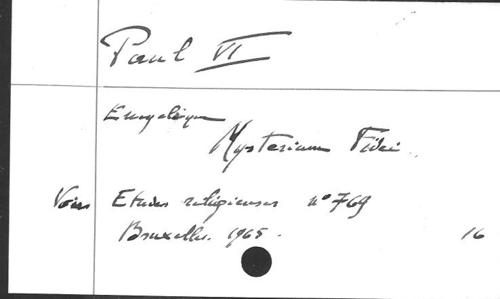 Paul VI
Encyclique
Mysterium Fidei
Voir Etudes religieuses n° 769
Bruxelles. 1965. 16